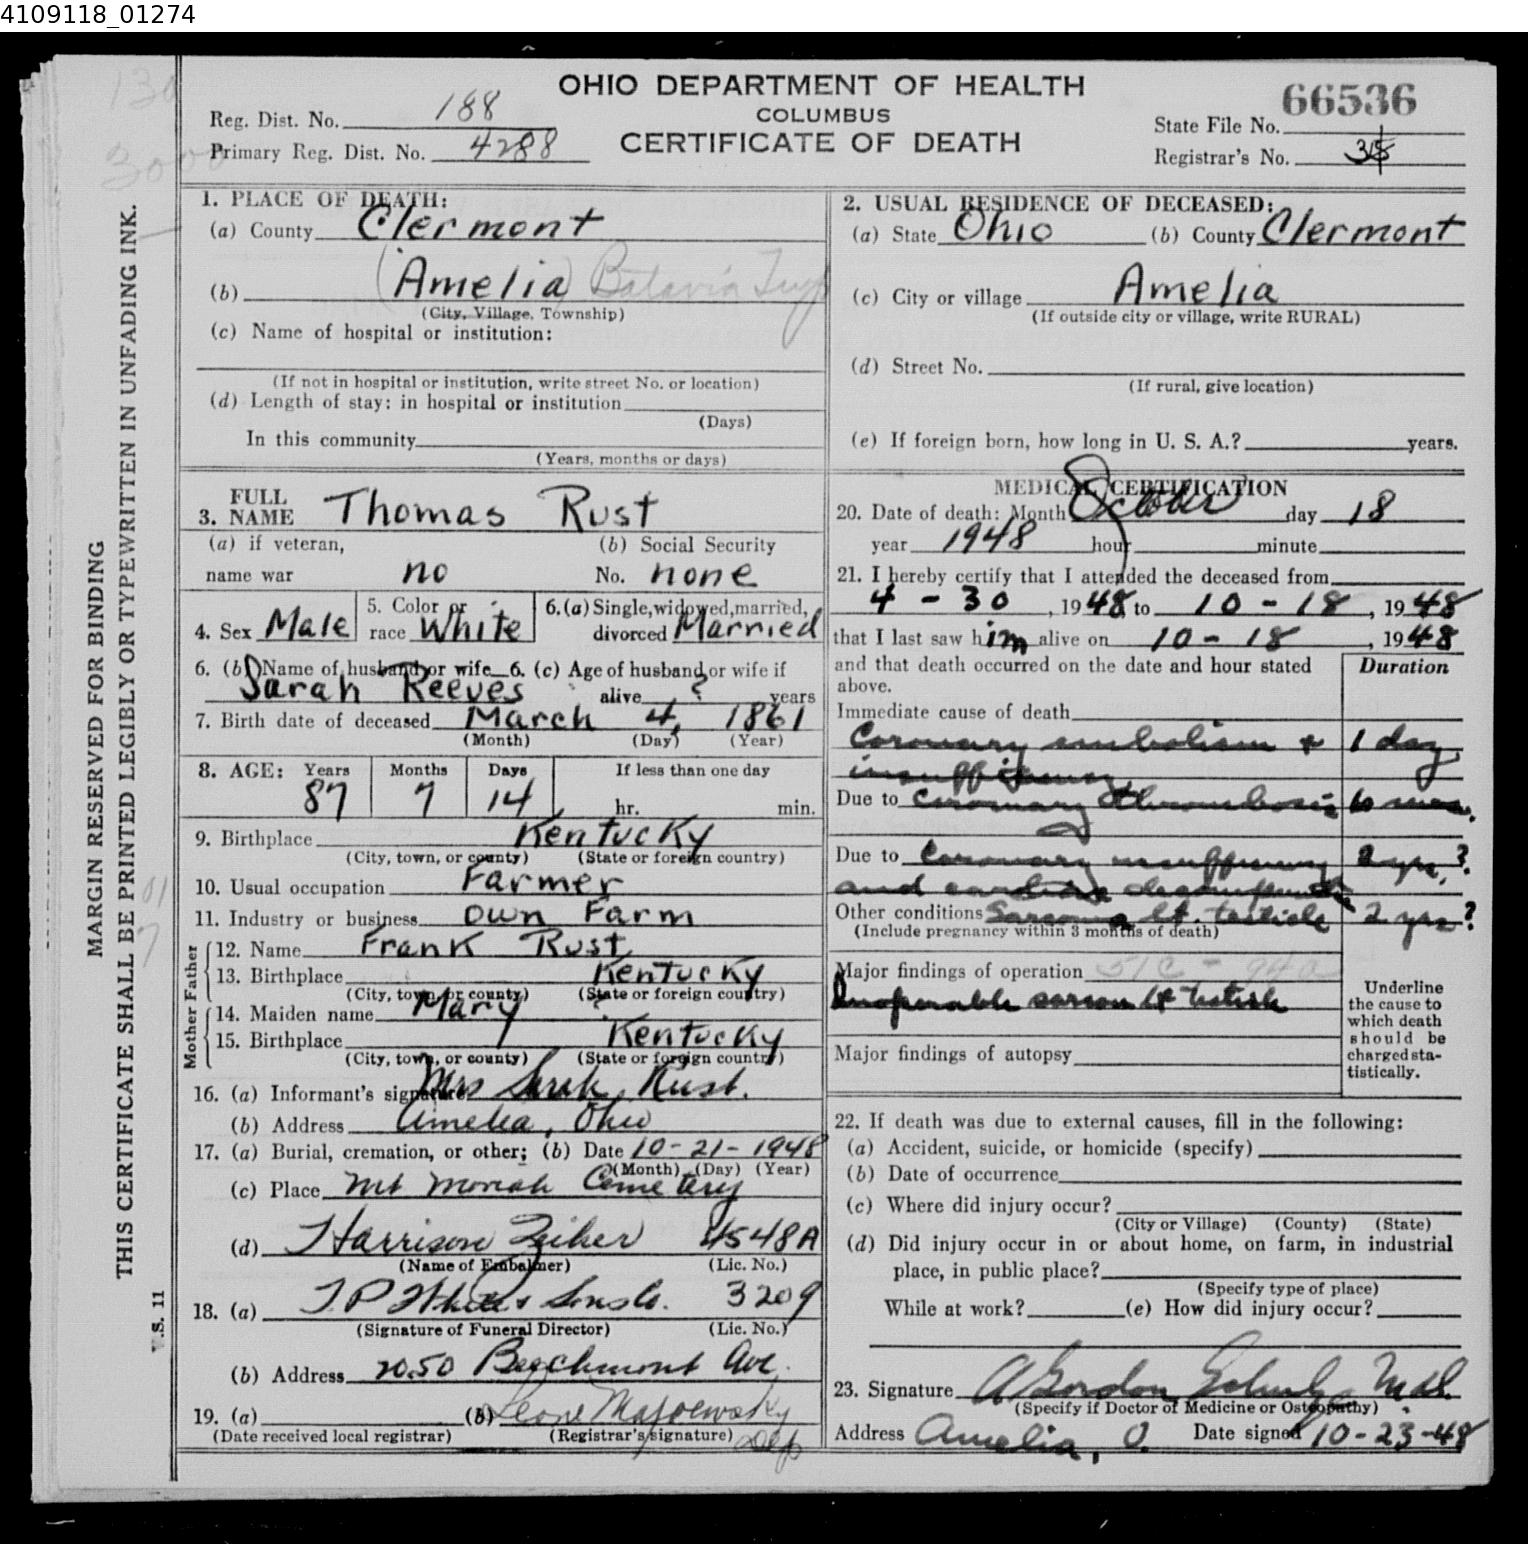 4109118_01274
OHIO DEPARTMENT OF HEALTH
COLUMBUS
CERTIFICATE OF DEATH
Reg. Dist. No. 188
Primary Reg. Dist. No. 4288
66536
State File No.
Registrar's No.
MARGIN RESERVED FOR BINDING
THIS CERTIFICATE SHALL BE PRINTED LEGIBLY OR TYPEWRITTEN IN UNFADING INK.
V.S. 11
1. PLACE OF DEATH:
(a) County Clermont
(b) (Amelia) Batavia Twp
(City, Village, Township)
(c) Name of hospital or institution:
(If not in hospital or institution, write street No. or location)
(d) Length of stay: in hospital or institution
(Days)
In this community
(Years, months or days)
2. USUAL RESIDENCE OF DECEASED:
(a) State Ohio (b) County Clermont
(c) City or village Amelia
(If outside city or village, write RURAL)
(d) Street No.
(If rural, give location)
(e) If foreign born, how long in U. S. A.? years.
3. FULL NAME Thomas Rust
(a) if veteran, name war no
(b) Social Security No. none
4. Sex Male
5. Color or race White
6. (a) Single, widowed, married, divorced Married
6. (b) Name of husband or wife Sarah Reeves
6. (c) Age of husband or wife if alive ? years
7. Birth date of deceased March 4, 1861
(Month) (Day) (Year)
8. AGE: Years 87 Months 7 Days 14 If less than one day hr. min.
9. Birthplace Kentucky
(City, town, or county) (State or foreign country)
10. Usual occupation Farmer
11. Industry or business own Farm
Father
12. Name Frank Rust
13. Birthplace Kentucky
(City, town, or county) (State or foreign country)
Mother
14. Maiden name Mary ?
15. Birthplace Kentucky
(City, town, or county) (State or foreign country)
16. (a) Informant's signature Mrs Sarah Rust.
(b) Address Amelia, Ohio
17. (a) Burial, cremation, or other; (b) Date 10-21-1948
(Month) (Day) (Year)
(c) Place Mt Moriah Cemetery
(d) Harrison 4548A
(Name of Embalmer) (Lic. No.)
18. (a) T.P. White & Sons Co. 3209
(Signature of Funeral Director) (Lic. No.)
(b) Address 2050 Beechmont Ave.
19. (a) (b) Leone Majoewsky
(Date received local registrar) (Registrar's signature) Dep
MEDICAL CERTIFICATION
20. Date of death: Month October day 18
year 1948 hour minute
21. I hereby certify that I attended the deceased from
4-30, 1948 to 10-18, 1948
that I last saw him alive on 10-18, 1948
and that death occurred on the date and hour stated above.
Duration
Immediate cause of death
Coronary embolism + 1 day
insufficiency
Due to Coronary thrombosis 6 mos.
Due to Coronary insufficiency 2 yrs.?
and cardiac decompensation
Other conditions Sarcoma lt. testicle 2 yrs?
(Include pregnancy within 3 months of death)
Major findings of operation
Inoperable sarcoma lt testicle
Major findings of autopsy
Underline the cause to which death should be charged statistically.
22. If death was due to external causes, fill in the following:
(a) Accident, suicide, or homicide (specify)
(b) Date of occurrence
(c) Where did injury occur?
(City or Village) (County) (State)
(d) Did injury occur in or about home, on farm, in industrial
place, in public place?
(Specify type of place)
While at work? (e) How did injury occur?
23. Signature A Gordon M.D.
(Specify if Doctor of Medicine or Osteopathy)
Address Amelia, O. Date signed 10-23-48